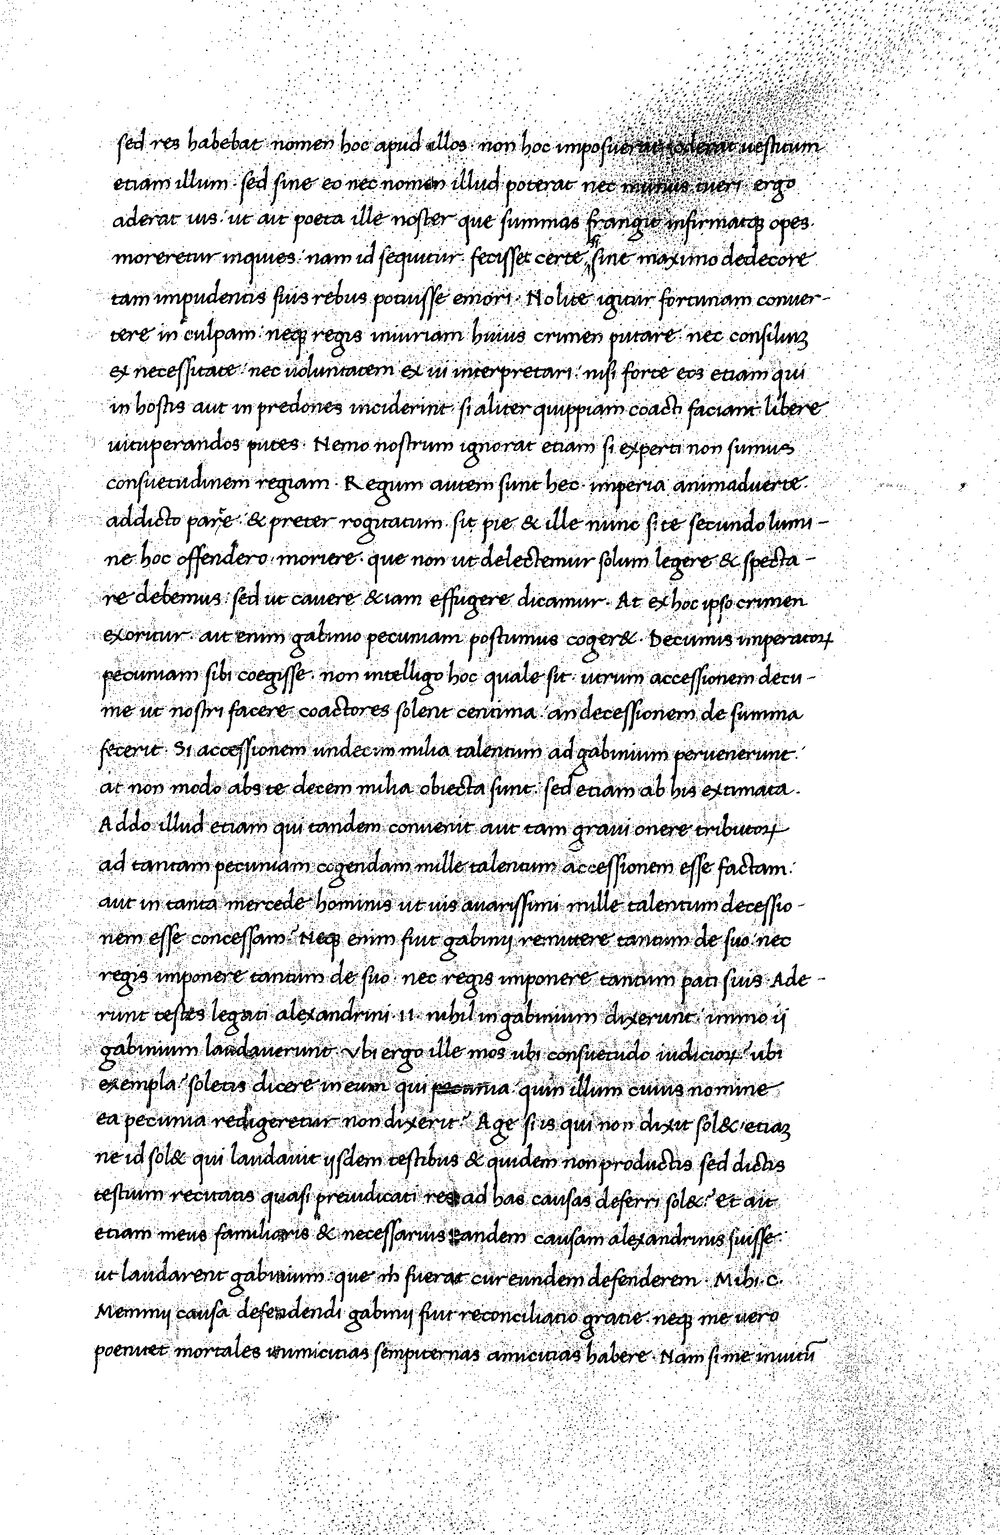 sed res habebat nomen hoc apud illos · non hoc imposuerat oderat uestitum
etiam illum · sed sine eo nec nomen illud poterat nec munus tueri · ergo
aderat uis · ut ait poeta ille noster que summas frangit infirmatq; opes ·
moreretur inquies · nam id sequitur · fecisset certe si sine maximo dedecore
tam impudentis suis rebus potuisse emori · Nolite igitur fortunam conuer-
tere in culpam · neq; regis iniuriam huius crimen putare · nec consiliuꝫ
ex necessitate · nec uoluntatem ex ui interpretari · nisi forte eos etiam qui
in hostis aut in predones inciderint · si aliter quippiam coacti faciant libere
uituperandos putes · Nemo nostrum ignorat etiam si experti non sumus
consuetudinem regiam · Regum autem sunt hec · imperia animaduerte ·
addicto pare · & preter rogitatum · sit pie & ille nunc si te secundo lumi-
ne hoc offendero · moriere · que non ut delectemur solum legere & specta-
re debemus · sed ut cauere & iam effugere dicamur · At ex hoc ipso crimen
exoritur · ait enim gabinio pecuniam postumus coger& · Decumis imperatoꝝ
pecuniam sibi coegisse · non intelligo hoc quale sit · utrum accessionem decu-
me ut nostri facere coactores solent centima · an decessionem de summa
fecerit · Si accessionem undecim milia talentum ad gabinium peruenerunt ·
at non modo abs te decem milia obiecta sunt · sed etiam ab his extimata ·
Addo illud etiam qui tandem conuenit aut tam graui onere tributoꝝ
ad tantam pecuniam cogendam mille talentum accessionem esse factam ·
aut in tanta mercede hominis ut uis auarissimi mille talentum decessio-
nem esse concessam? Neq; enim fuit gabinij remittere tantum de suo · nec
regis imponere tantum de suo · nec regis imponere tantum pati suis · Ade-
runt testes legati alexandrini · ii · nihil in gabinium dixerunt · immo ij
gabinium laudauerunt · Vbi ergo ille mos ubi consuetudo iudicioꝝ? ubi
exempla? soletis dicere in eum qui pecunia quin illum cuius nomine
ea pecunia redigeretur non dixerit? Age si is qui non dixit sol& · etiaꝫ
ne id sol& qui laudauit ijsdem testibus & quidem non productis sed dictis
testium recitatis quasi preiudicati res ad has causas deferri sol&? Et ait
etiam meus familiaris & necessarius eandem causam alexandrinis fuisse
ut laudarent gabinium · que m̅ fuerat cur eundem defenderem · Mihi · C ·
Memmij causa defendendi gabinij fuit reconciliatio gratie · neq; me uero
poenitet mortales inimicitias sempiternas amicitias habere · Nam si me inuitū